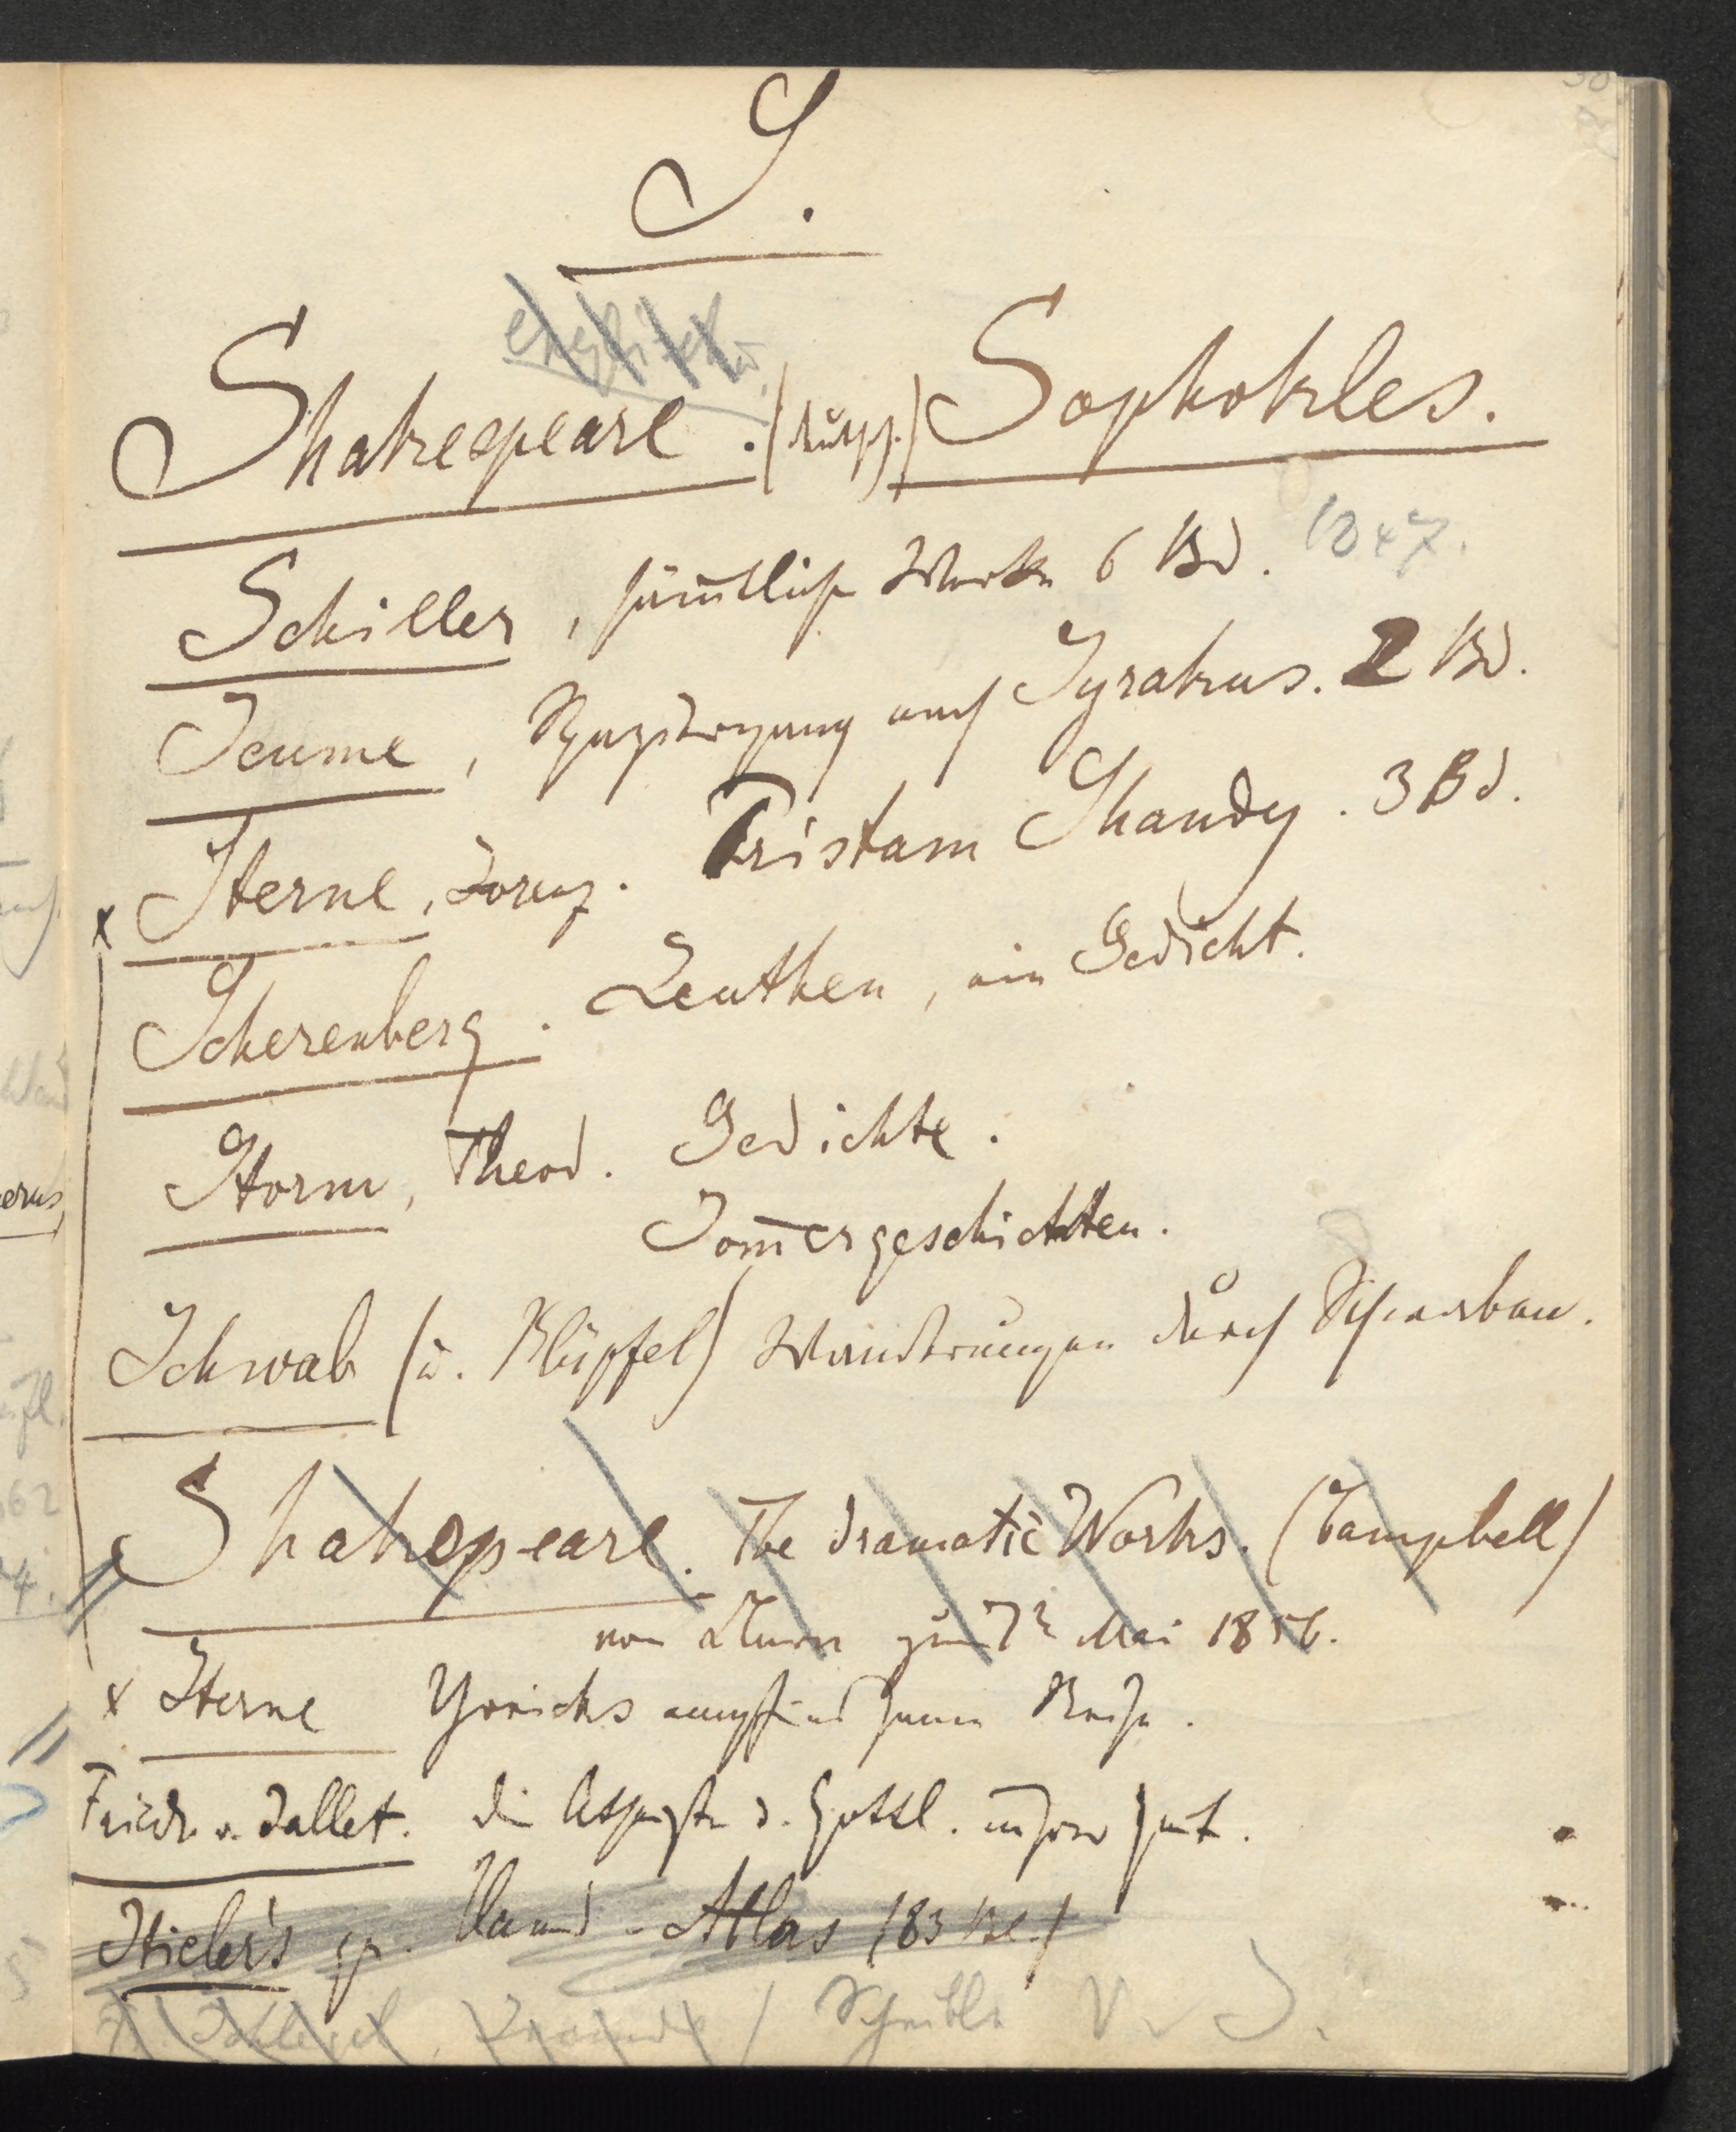 S.
englisch
Shakespeare. (deutsch.) Sophokles.
Schiller, sämtliche Werke 6 Bd. 1847.
Seume, Spaziergang nach Syrakus. 2 Bd.
x Sterne, Lorenz. Tristam Shandy. 3 Bd.
Scherenberg. Leuthen, ein Gedicht.
Storm, Theod. Gedichte.
Somergeschichten.
Schwab (u. Klüpfel) Wanderungen durch Schwaben.
Shakespeare. The dramatic Works. (Campbell)
von zum 7t Mai 1856.
x Sterne Yoricks empfindsame Reise.
Friedr. v. Sallet. die Atheisten u. Gottl. unserer Zeit.
Stieler's gr. Hand-Atlas (83 Bl.)
Schlegel, / Scheible V. S.